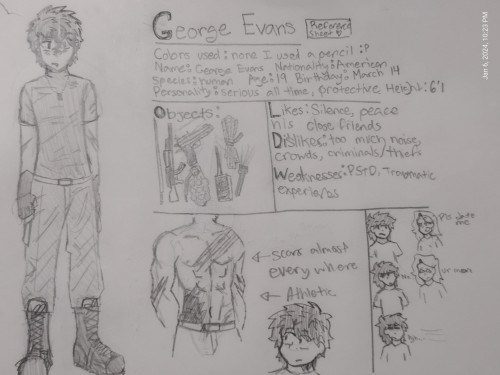 George Evans
Reference
Sheet
Colors used: none I used a pencil :P
Name: George Evans Nationality: American
Species: human Age: 19 Birthday: March 14
Personality: serious all time, protective Height: 6'1
Objects:
Likes: Silence, peace
his close friends
Dislikes: too much noise,
crowds, criminals/thiefs
Weaknesses: PSTD, Traumatic
← scars almost
every where
← Athletic
Pls date
me
ur mean
Jan 6, 2024, 10:23 PM